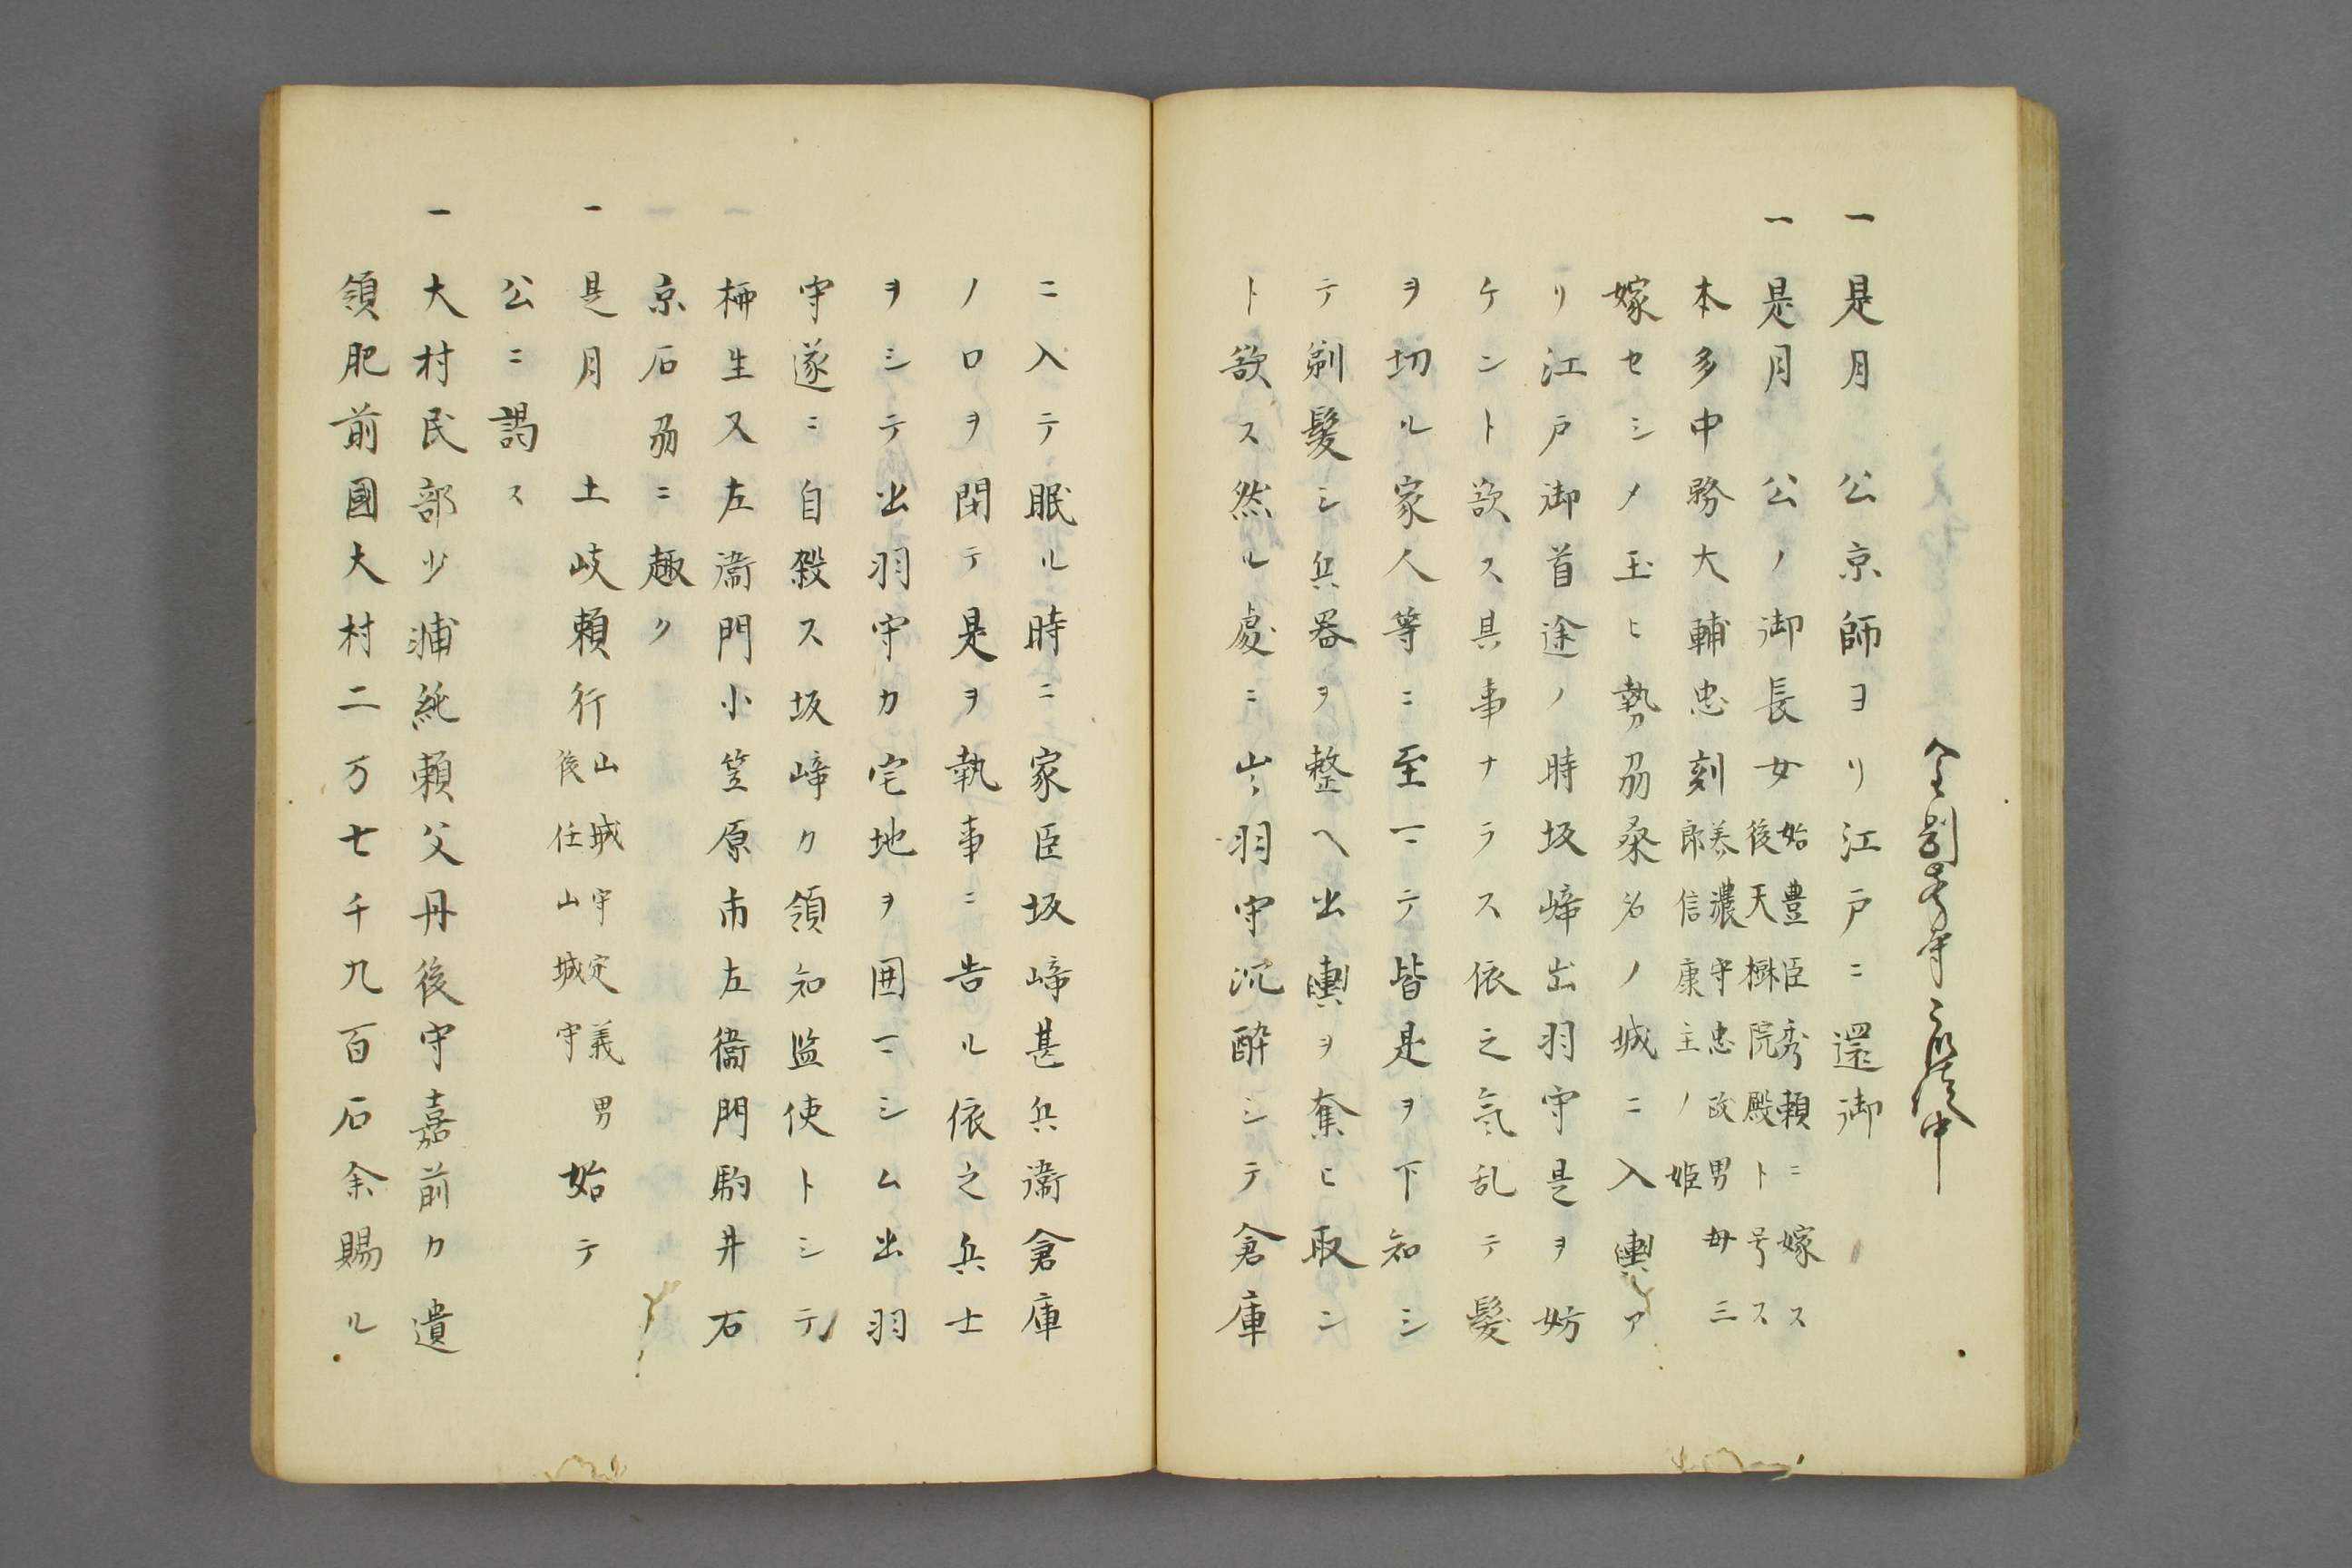 一是月　公京師ヨリ江戸ニ還御
一是月　公ノ御長女始豊臣秀頼ニ嫁ス
後天樹院殿ト号ス
本多中務大輔忠刻美濃守忠政男母三
郎信康主ノ姫
嫁セシメ玉ヒ勢刕桑名ノ城ニ入輿ア
リ江戸御首途ノ時坂﨑出羽守是ヲ妨
ケント欲ス其事ナラス依之気乱テ髪
ヲ切ル家人等ニ至マテ皆是ヲ下知シ
テ剃髪シ兵器ヲ整ヘ出輿ヲ奪ヒ取ン
ト欲ス然ル處ニ出羽守沉酔シテ倉庫
ニ入テ眠ル時ニ家臣坂﨑甚兵衛倉庫
ノ口ヲ閉テ是ヲ執事ニ告ル依之兵士
ヲシテ出羽守カ宅地ヲ囲マシム出羽
守遂ニ自殺ス坂﨑カ領知監使トシテ
柳生又左衛門小笠原市左衛門駒井右
京石刕ニ趣ク
一是月　土岐頼行山城守定義男
後任山城守
始テ
公ニ謁ス
一大村民部少浦純頼父丹後守嘉前カ遺
領肥前國大村二万七千九百石余賜ル